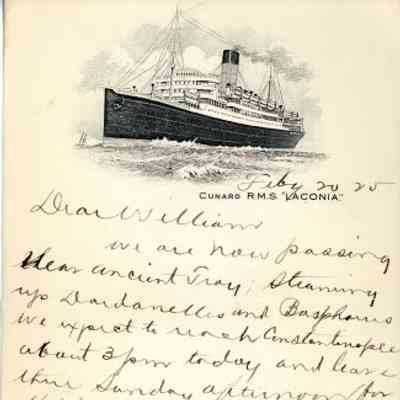 Feby 20 25
CUNARD R.M.S. "LACONIA"
Dear William
we are now passing
near ancient Troy; Steaming
up Dardanelles and Bosphorus
we expect to reach Constantinople
about 3 pm today and leave
there Sunday afternoon for